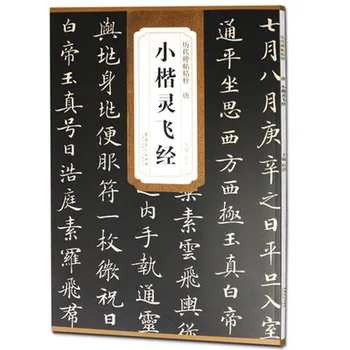 历代碑帖精粹 唐
小楷灵飞经
七月八月庚辛之日平旦入室
平坐思西方西極玉真
素雲飛輿從
手執通靈
與兆身兆便服符一枚微祝曰
白帝玉真號曰浩庭素羅飛羣
小楷灵飞经